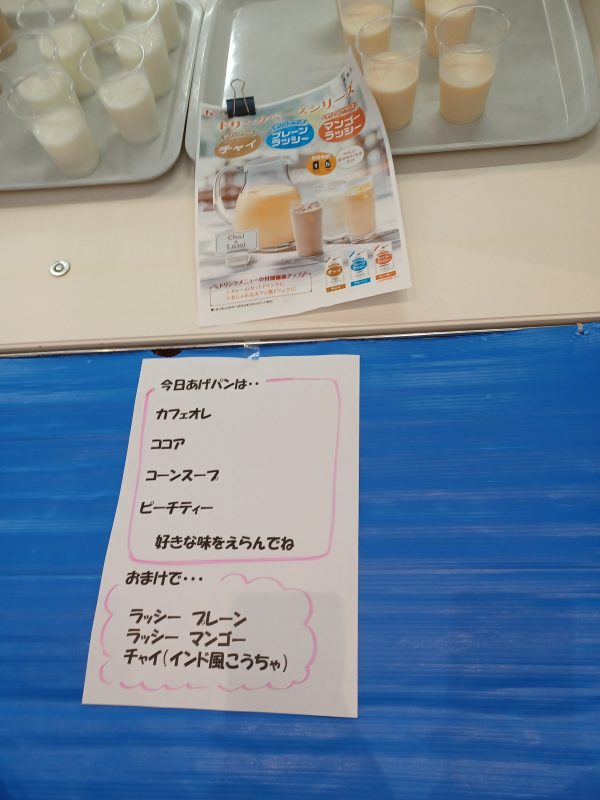 ドリンクベースシリーズ
チャイ
プレーン
ラッシー
マンゴー
ラッシー
Chai
&
Lassi
ドリンクメニューの付加価値アップ
今日あげパンは・・
カフェオレ
ココア
コーンスープ
ピーチティー
好きな味をえらんでね
おまけで・・・
ラッシー プレーン
ラッシー マンゴー
チャイ(インド風こうちゃ)